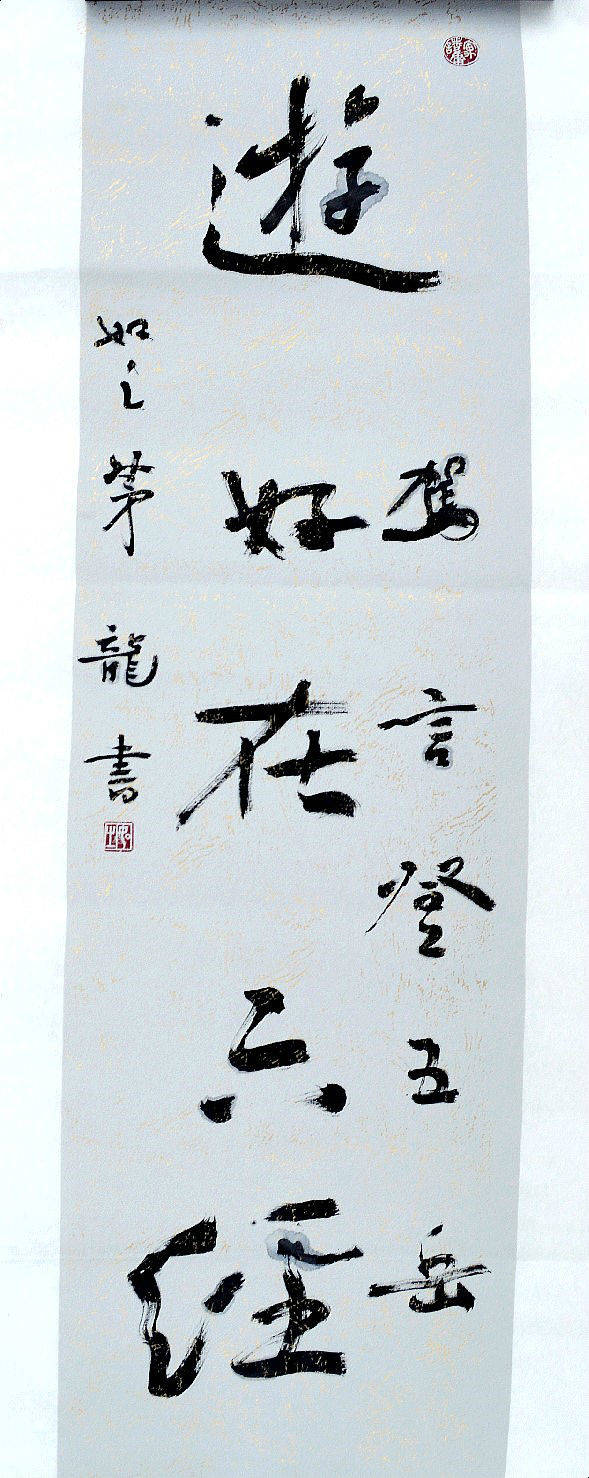 駕言登五岳
遊好在六經
如之茅龍書